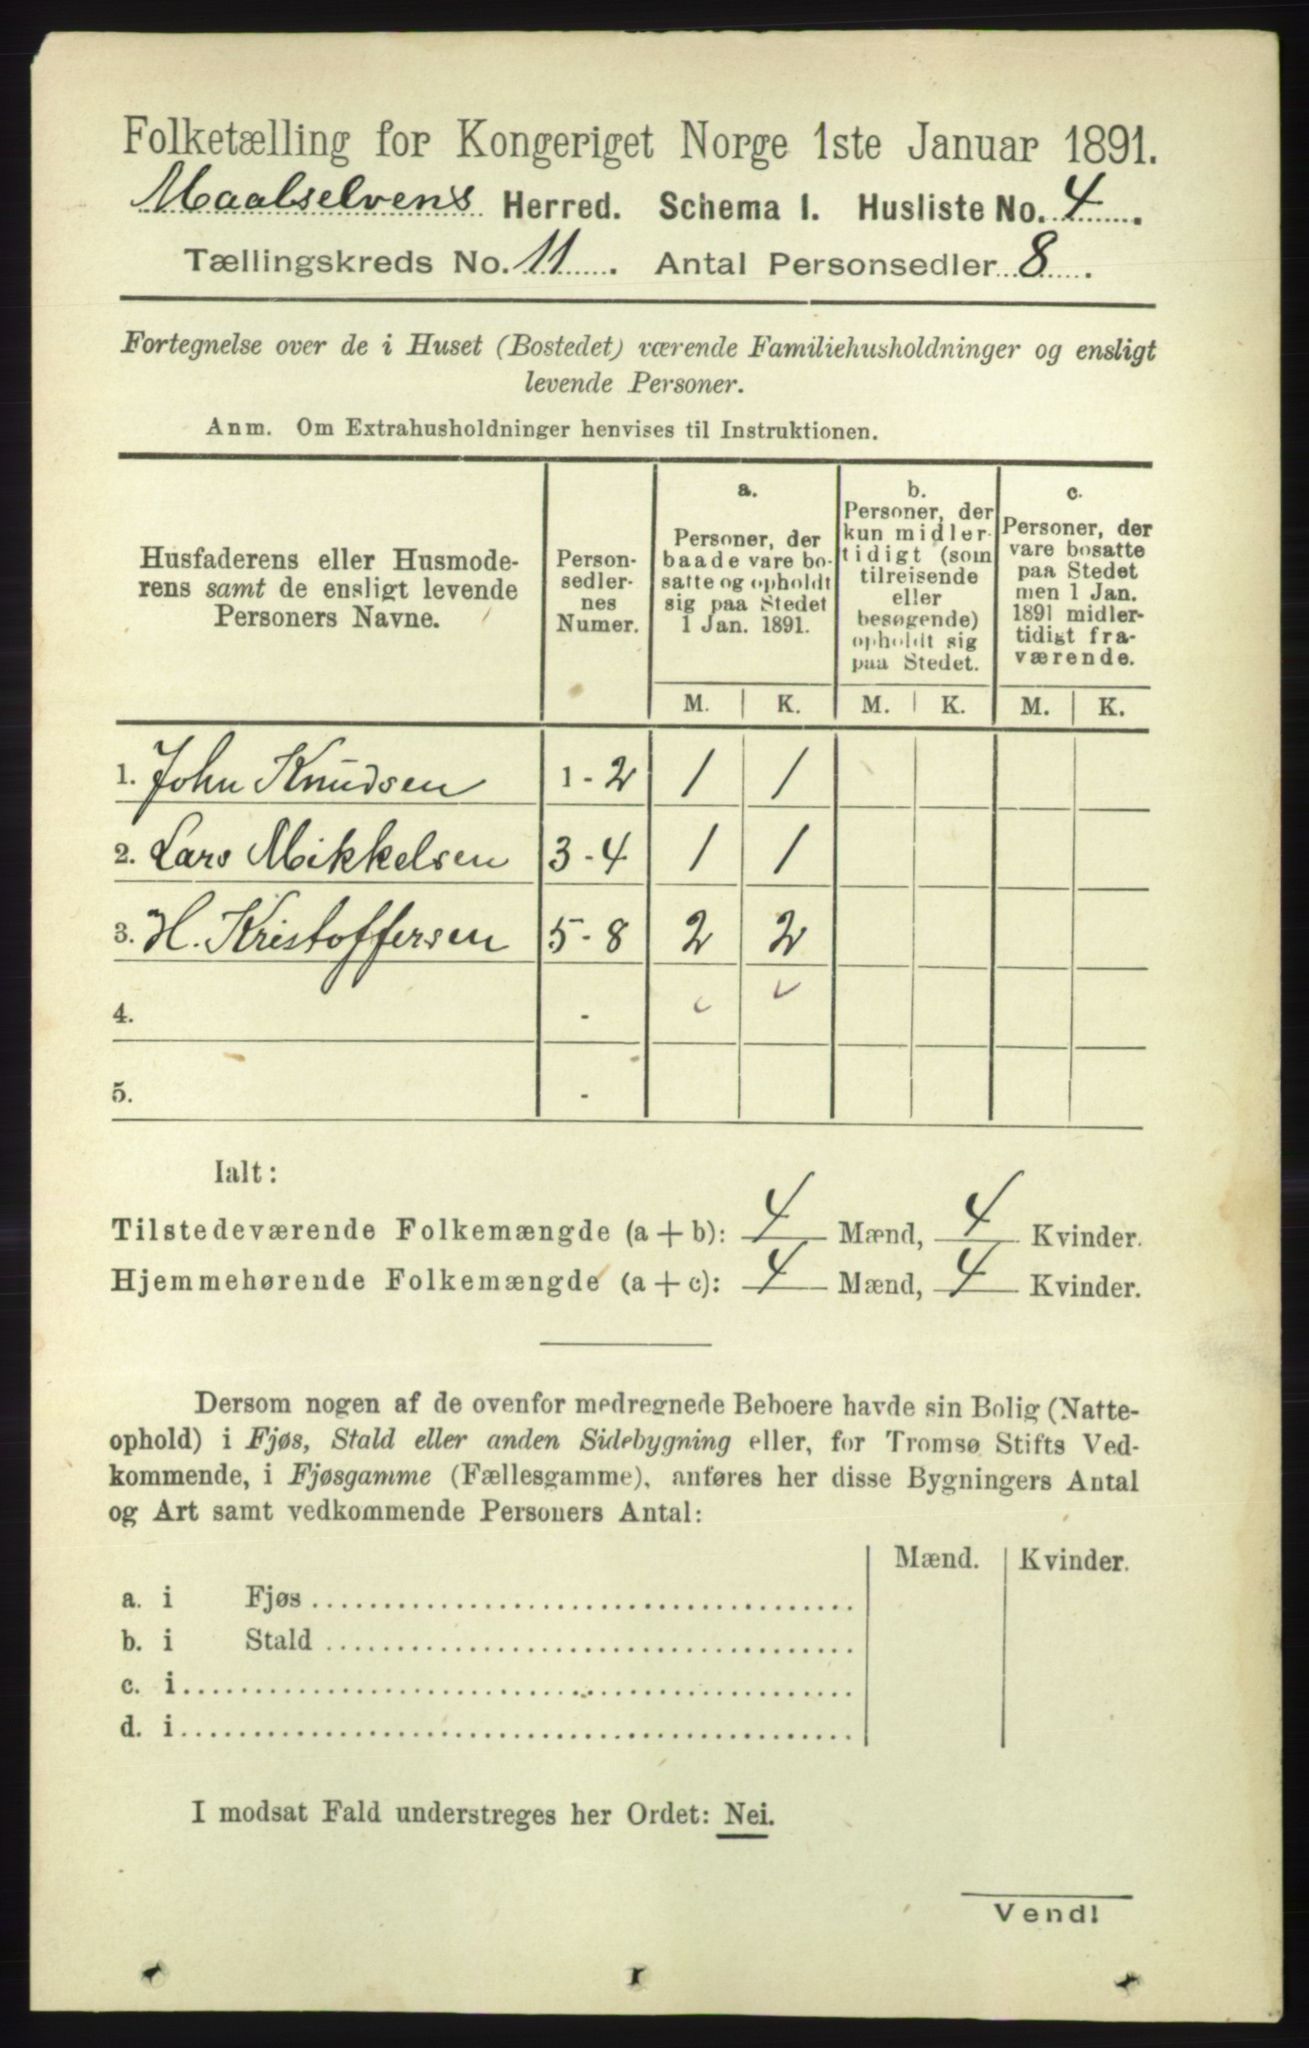 Folketælling for Kongeriget Norge 1ste Januar 1891.
Maalselvens Herred. Schema I. Husliste No. 4.
Tællingskreds No. 11. Antal Personsedler 8.
Fortegnelse over de i Huset (Bostedet) værende Familiehusholdninger og ensligt
levende Personer.
Anm. Om Extrahusholdninger henvises til Instruktionen.
Husfaderens eller Husmode-
rens samt de ensligt levende
Personers Navne.
Person-
sedler-
nes
Numer.
a.
Personer, der
baade vare bo-
satte og opholdt
sig paa Stedet
1 Jan. 1891.
b.
Personer, der
kun midler-
tidigt (som
tilreisende
eller
besøgende)
opholdt sig
paa Stedet.
c.
Personer, der
vare bosatte
paa Stedet
men 1 Jan.
1891 midler-
tidigt fra-
værende.
M. K. M. K. M. K.
1. John Knudsen 1-2 1 1
2. Lars Mikkelsen 3-4 1 1
3. H. Kristoffersen 5-8 2 2
4. -
5. -
Ialt:
Tilstedeværende Folkemængde (a + b): 4 Mænd, 4 Kvinder.
Hjemmehørende Folkemængde (a + c): 4 Mænd, 4 Kvinder.
Dersom nogen af de ovenfor medregnede Beboere havde sin Bolig (Natte-
ophold) i Fjøs, Stald eller anden Sidebygning eller, for Tromsø Stifts Ved-
kommende, i Fjøsgamme (Fællesgamme), anføres her disse Bygningers Antal
og Art samt vedkommende Personers Antal:
Mænd. Kvinder.
a. i Fjøs
b. i Stald
c. i
d. i
I modsat Fald understreges her Ordet: Nei.
Vend!